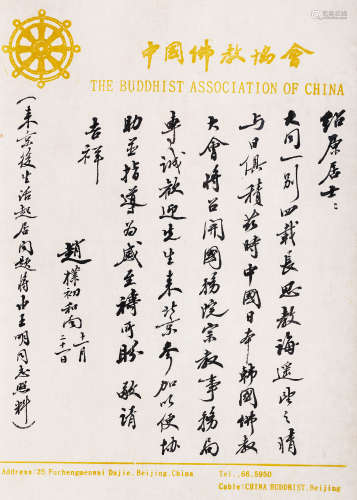 中國佛教協會
THE BUDDHIST ASSOCIATION OF CHINA
绍原居士：
大同一别四载長思教诲遥望之情
与日俱積兹時中國日本韩國佛教
大會将召開國務院宗教事務局
專诚歡迎先生来北京参加以便协
助並指導为感至禱所盼敬請
吉祥
趙樸初和南
十一月
二十一日
（来京後生活起居问题将由王明同志照料）
Address:25 Fuchengmennei Dajie,Beijing,China
Tel.,66.5950
Cable:CHINA BUDDHIST,Beijing